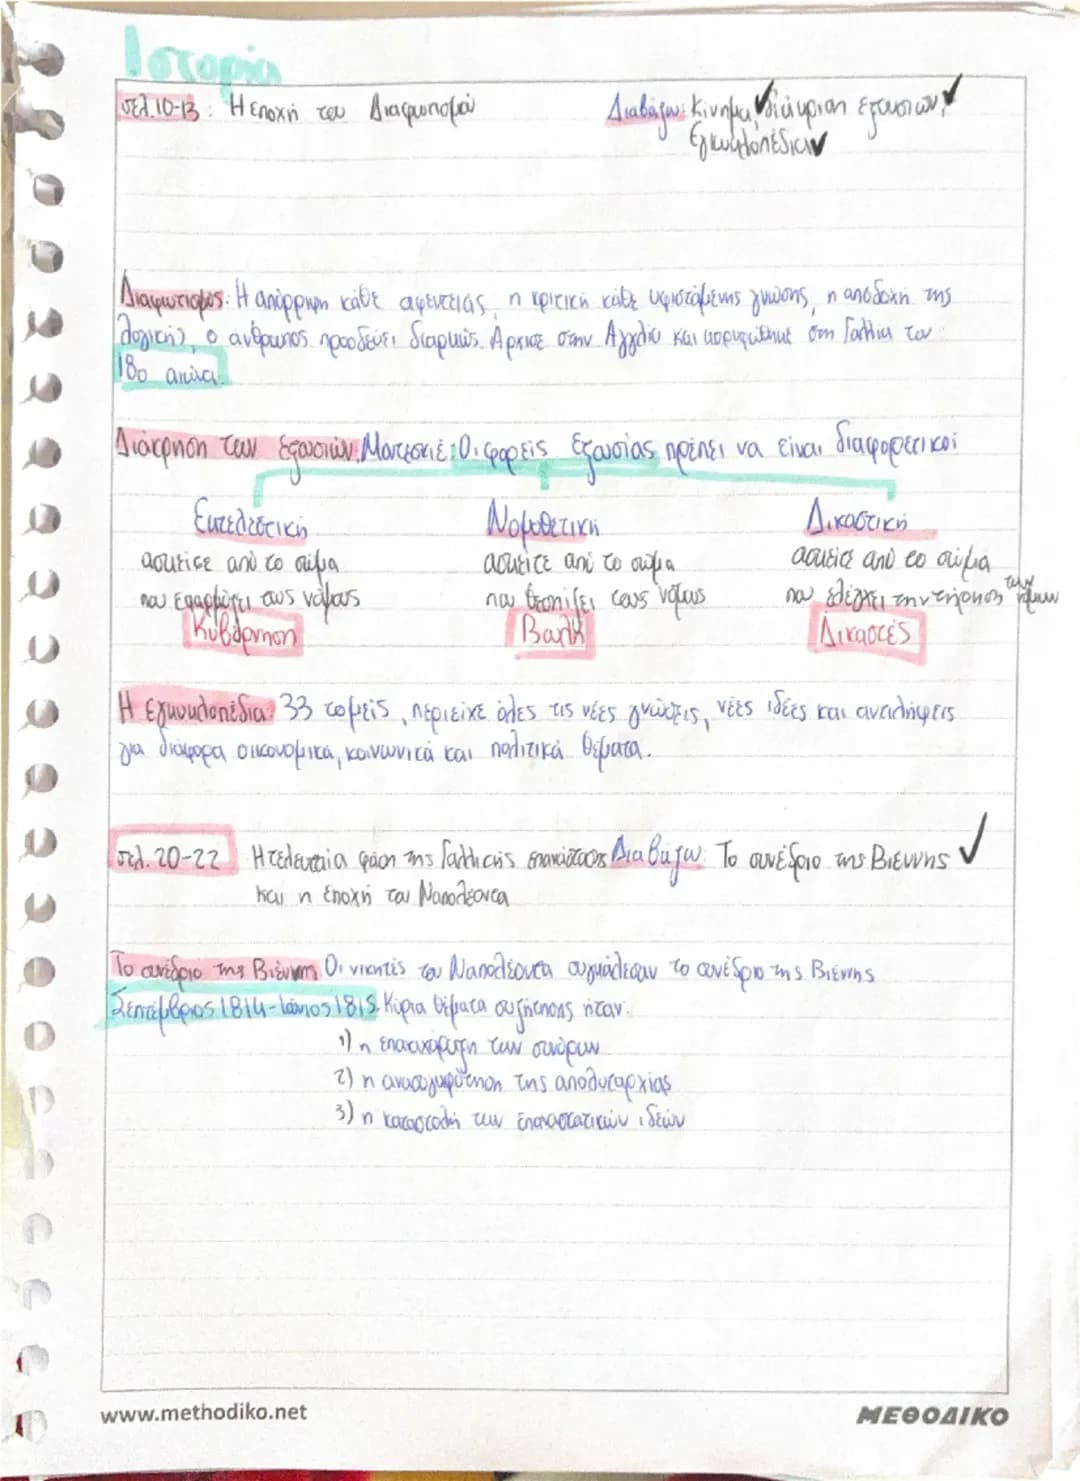 Ιστορία
σελ.10-13: Η εποχή του Διαφωτισμού Διαβάζω: Κίνημα, διάκριση εξουσιών,
Εγκυκλοπέδια
Διαφωτισμός: Η απόρριψη κάθε αφεντειάς, η κριτική κάθε υφιστάμενης γνώσης, η αποδοχή της
λογικής, ο άνθρωπος προοδεύει διαρκώς. Άρχισε στην Αγγλία και κορυφώθηκε στη Γαλλία τον
18ο αιώνα.
Διάκρηση των εξουσιών: Μοντεσκιέ: Οι φορείς εξουσίας πρέπει να είναι διαφορετικοί
Εκτελεστική Νομοθετική Δικαστική
ασκείτε από το σώμα ασκείτε από το σώμα ασκείτε από το σώμα
που εφαρμόζει τους νόμους που θεσπίζει τους νόμους που ελέγχει την τήρηση των νόμων
Κυβέρνηση Βουλή Δικαστές
Η εγκυκλοπέδια: 33 τομείς, περιείχε όλες τις νέες γνώσεις, νέες ιδέες και αντιλήψεις
για διάφορα οικονομικά, κοινωνικά και πολιτικά θέματα.
σελ. 20-22 Η τελευταία φάση της Γαλλικής επανάστασης Διαβάζω: Το συνέδριο της Βιέννης
και η εποχή του Ναπολέοντα
Το συνέδριο της Βιέννης Οι νικητές του Ναπολέοντα συγκάλεσαν το συνέδριο της Βιέννης
Σεπτέμβριος 1814-Ιούνιος 1815. Κύρια θέματα συζήτησης ήταν:
1) η επαναχάραξη των συνόρων
2) η αναζωγόνηση της απολυταρχίας
3) η καταστολή των επαναστατικών ιδεών
www.methodiko.net ΜΕΘΟΔΙΚΟ